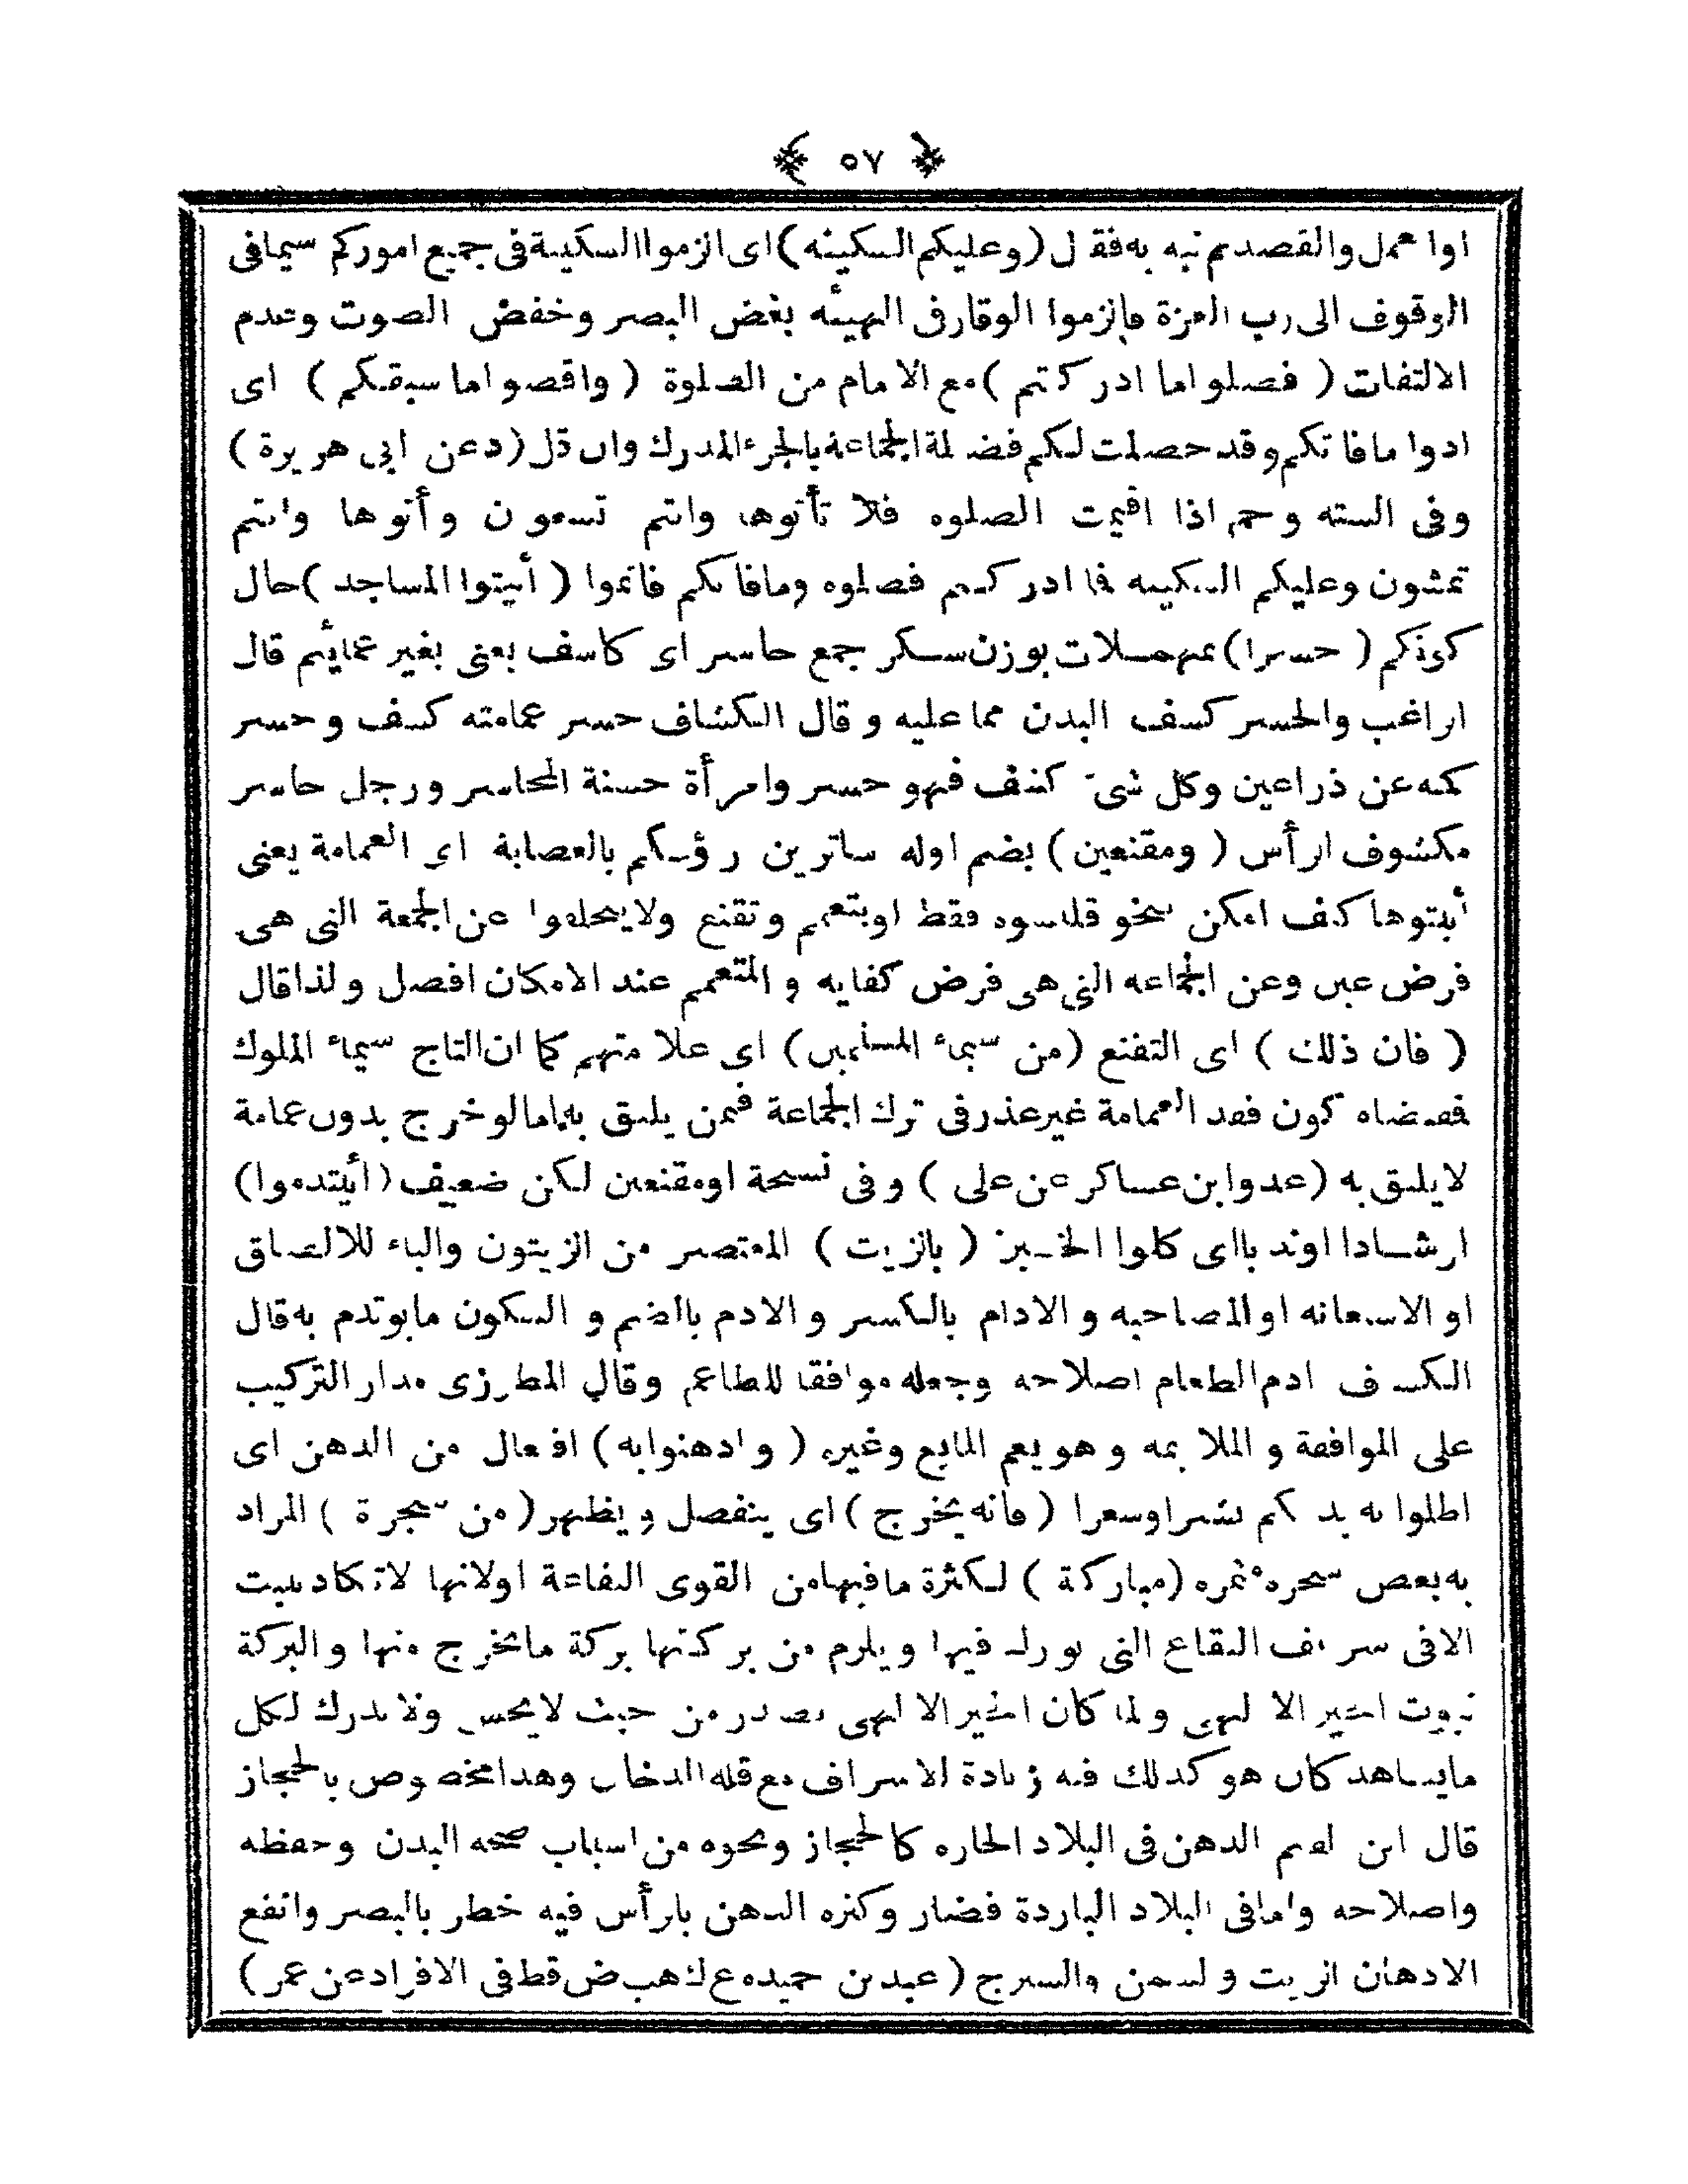 ﴿ ٥٧ ﴾
اوا عمل والقصد ثم نبه به فقال (وعليكم السكينه) اى الزموا السكينة فى جميع اموركم سيما فى
الوقوف الى رب العزة فالزموا الوقار فى الهيئه بغض البصر وخفض الصوت وعدم
الالتفات ( فصلوا ما ادركتم ) مع الامام من الصلوة ( واقضوا ما سبقكم ) اى
ادوا ما فاتكم وقد حصلت لكم فضيلة الجماعة بالجزء المدرك وان قل ( د عن ابى هريرة )
وفى الستة وحم اذا اقيمت الصلوه فلا تأتوها وانتم تسعون وأتوها وانتم
تمشون وعليكم السكينه فما ادركتم فصلوه وما فاتكم فاتموا ( أيتوا المساجد ) حال
كونكم ( حسرا ) بمهملات بوزن سكر جمع حاسر اى كاشف يعنى بغير عمايم قال
اراغب والحسر كشف البدن مما عليه وقال الكشاف حسر عمامته كشف وحسر
كمه عن ذراعين وكل شئ كشف فهو حسر وامرأة حسنة المحاسر ورجل حاسر
مكشوف ارأس ( ومقنعين ) بضم اوله ساترين رؤسكم بالعصابة اى العمامة يعنى
أيتوها كيف امكن بنحو قلنسوه فقط او بتعمم وتقنع ولا يتخلفوا عن الجمعة التى هى
فرض عين وعن الجماعه التى هى فرض كفايه والتعمم عند الامكان افضل ولذا قال
( فان ذلك ) اى التقنع ( من سيماء المسلمين ) اى علامتهم كما ان التاج سيماء الملوك
فقضاه كون فقد العمامة غير عذر فى ترك الجماعة فمن يليق به اما لو خرج بدون عمامة
لا يليق به ( عد وابن عساكر عن على ) وفى نسخة او مقنعين لكن ضعيف ( أيتدموا )
ارشادا او ندبا اى كلوا الخبز ( بالزيت ) المعتصر من الزيتون والباء للالصاق
او الاستعانه او المصاحبه والادام بالكسر والادم بالضم والسكون ما يوتدم به قال
الكشاف ادم الطعام اصلاحه وجعله موافقا للطاعم وقال المطرزى مدار التركيب
على الموافقة والملايمه وهو يعم المايع وغيره ( وادهنوا به ) افتعال من الدهن اى
اطلوا به بدنكم بشرا وشعرا ( فانه يخرج ) اى ينفصل ويظهر ( من شجرة ) المراد
به بعض شجره ثمره ( مباركة ) لكثرة ما فيها من القوى النفاعة او لانها لا تكاد تنبت
الا فى شريف البقاع التى بورك فيها ويلزم من بركتها بركة ما يخرج منها والبركة
ثبوت الخير الالهى ولما كان الخير الالهى يصدر من حيث لا يحس ولا يدرك لكل
ما يشاهد كان هو كذلك فيه زيادة لاسراف مع قله الدخان وهذا مخصوص بالحجاز
قال ابن القيم الدهن فى البلاد الحاره كالحجاز ونحوه من اسباب صحه البدن وحفظه
واصلاحه واما فى البلاد الباردة فضار وكثره الدهن بارأس فيه خطر بالبصر وانفع
الادهان الزيت ولسمن والسيرج ( عبد بن حميد ه ع ك هب ض قط فى الافراد عن عمر )